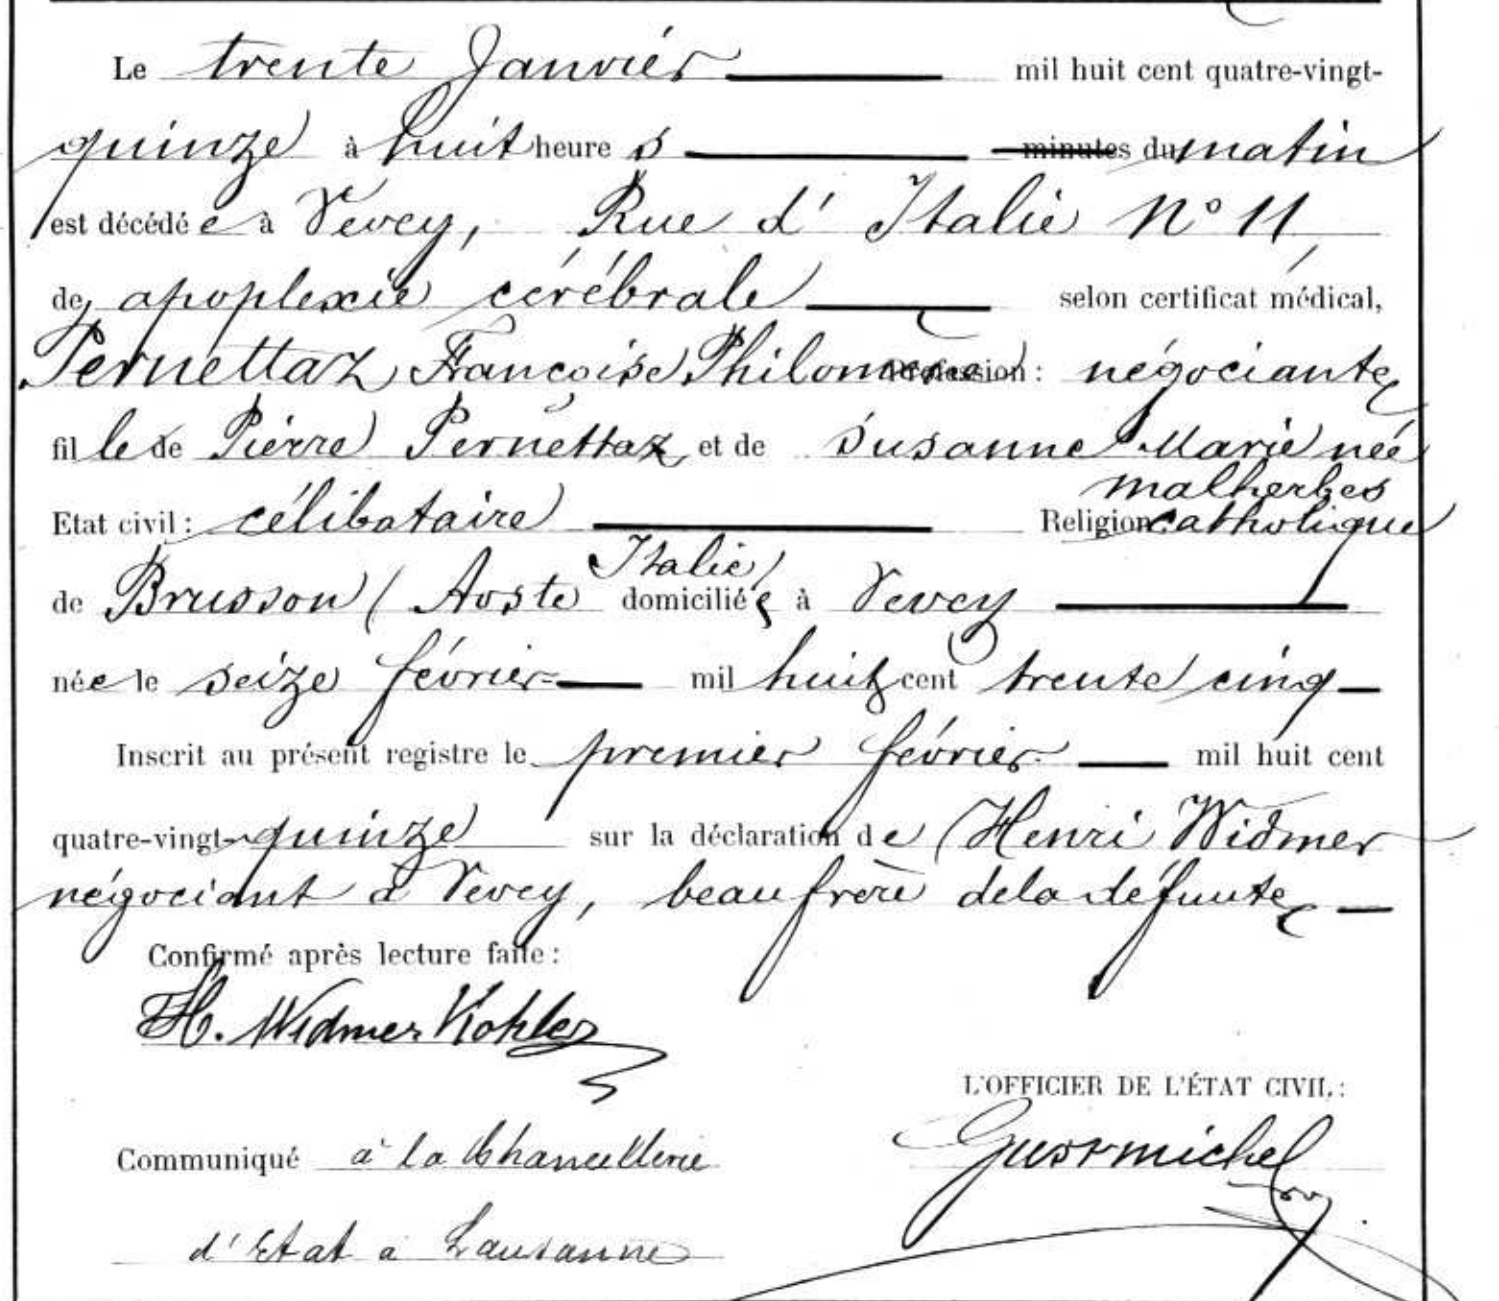 Le trente Janvier mil huit cent quatre-vingt-
quinze à huit heures minutes du matin
est décédée à Vevey, Rue d'Italie N° 11,
de apoplexie cérébrale selon certificat médical,
Pernettaz Françoise Philomène Profession : négociante
fille de Pierre Pernettaz et de Susanne Marie née
malherbes
Etat civil : célibataire Religion : catholique
Italie)
de Brusson (Aoste domiciliée à Vevey
née le seize février mil huit cent trente cinq
Inscrit au présent registre le premier février mil huit cent
quatre-vingt-quinze sur la déclaration de Henri Widmer
négociant à Vevey, beau frère de la défunte
Confirmé après lecture faite :
H. Widmer Kohler
L'OFFICIER DE L'ÉTAT CIVIL :
Communiqué à la Chancellerie
d'Etat à Lausanne